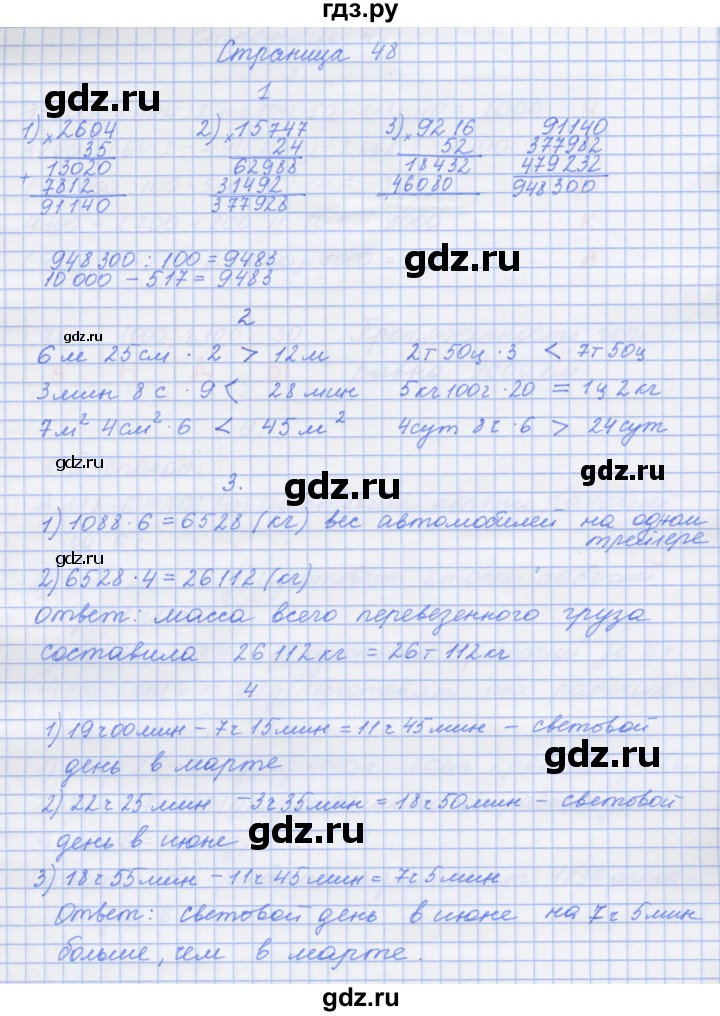 гдз.ру
Страница 48
gdz.ru
gdz.ru
1
1) × 2604
35
13020
+ 7812
91140
2) × 15747
24
62988
31492
377928
3) × 9216
52
18432
46080
91140
377982
479232
948300
948300 : 100 = 9483
gdz.ru
10 000 - 517 = 9483
2
gdz.ru
6м 25см · 2 > 12м 2т 50ц · 3 < 7т 50ц
3мин 8с · 9 < 28мин 5кг100г · 20 = 1ц 2кг
7м² 4см² · 6 < 45м² 4сут 8ч · 6 > 24сут
gdz.ru
gdz.ru
3.
gdz.ru
1) 1088 · 6 = 6528 (кг) вес автомобилей на одном
трейлере
gdz.ru
2) 6528 · 4 = 26112 (кг)
Ответ: масса всего перевезенного груза
составила 26112кг = 26т 112кг
4
1) 19ч00мин - 7ч 15мин = 11ч 45мин - световой
день в марте
gdz.ru
2) 22ч 25мин - 3ч 35мин = 18ч 50мин - световой
день в июне
gdz.ru
3) 18ч 55мин - 11ч 45мин = 7ч 5мин
Ответ: световой день в июне на 7ч 5мин
gdz.ru
больше, чем в марте.
gdz.ru